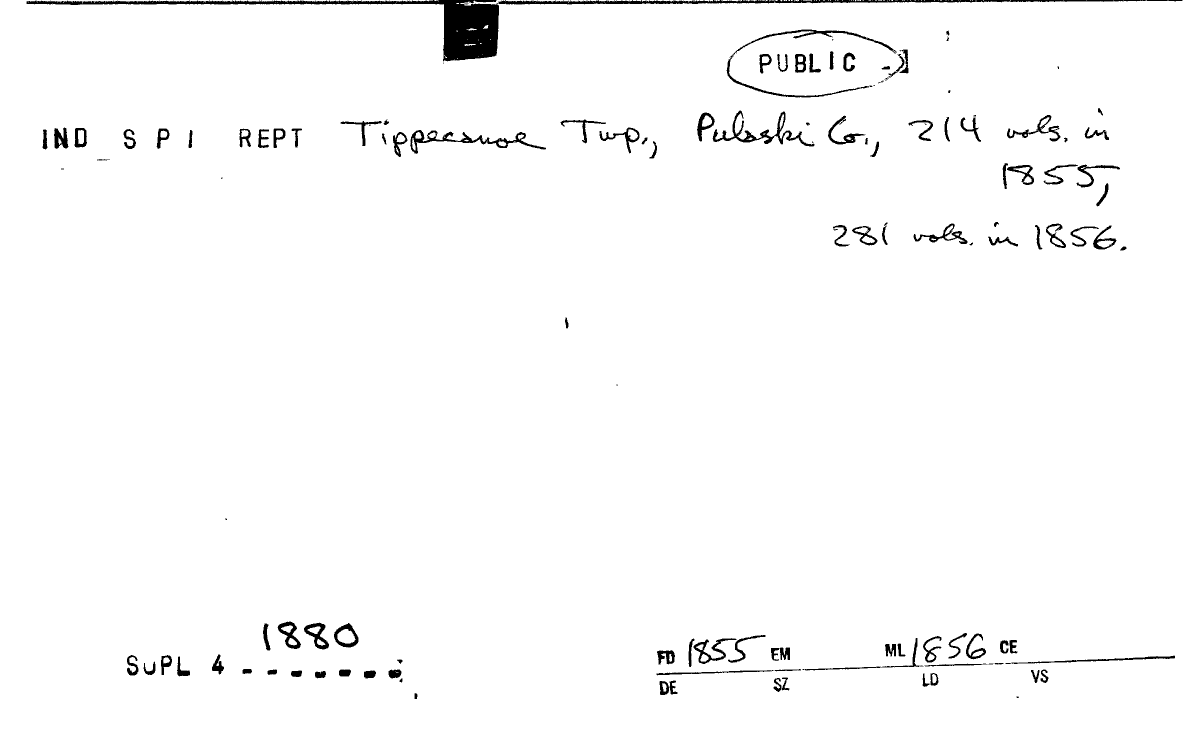 PUBLIC
IND S P I REPT Tippecanoe Twp., Pulaski Co., 214 vols. in
1855,
281 vols. in 1856.
1880
SUPL 4
FD 1855 EM ML 1856 CE
DE SZ LD VS